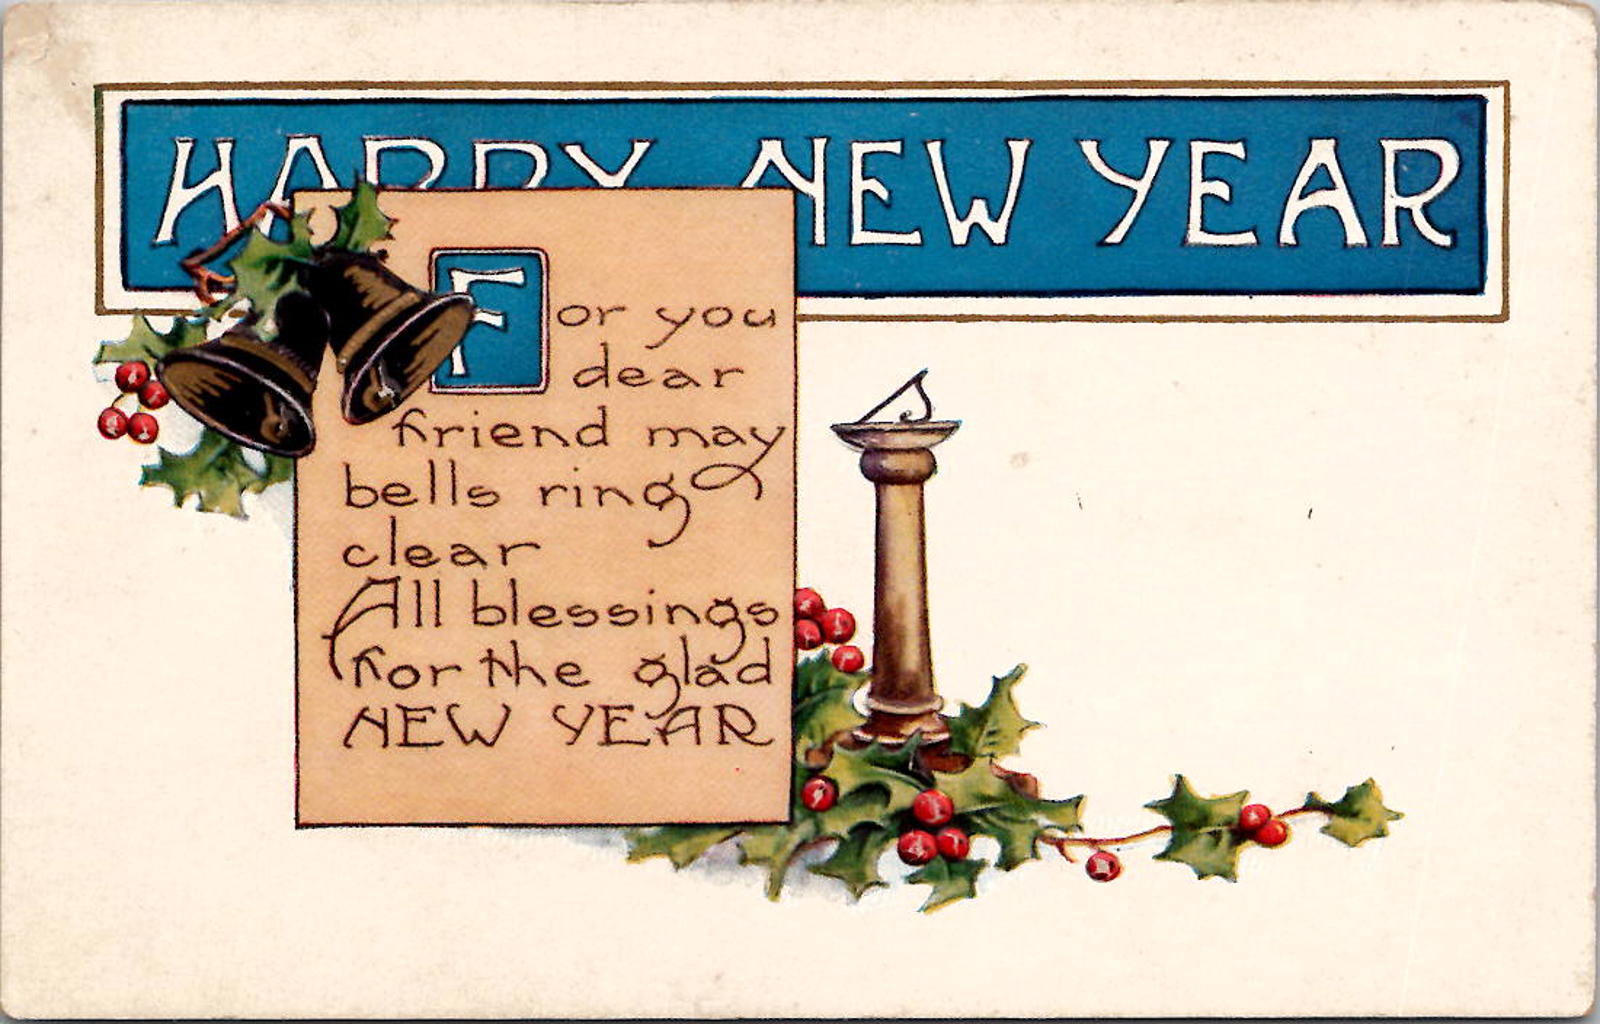 HAPPY NEW YEAR
For you
dear
friend may
bells ring
clear
All blessings
for the glad
NEW YEAR